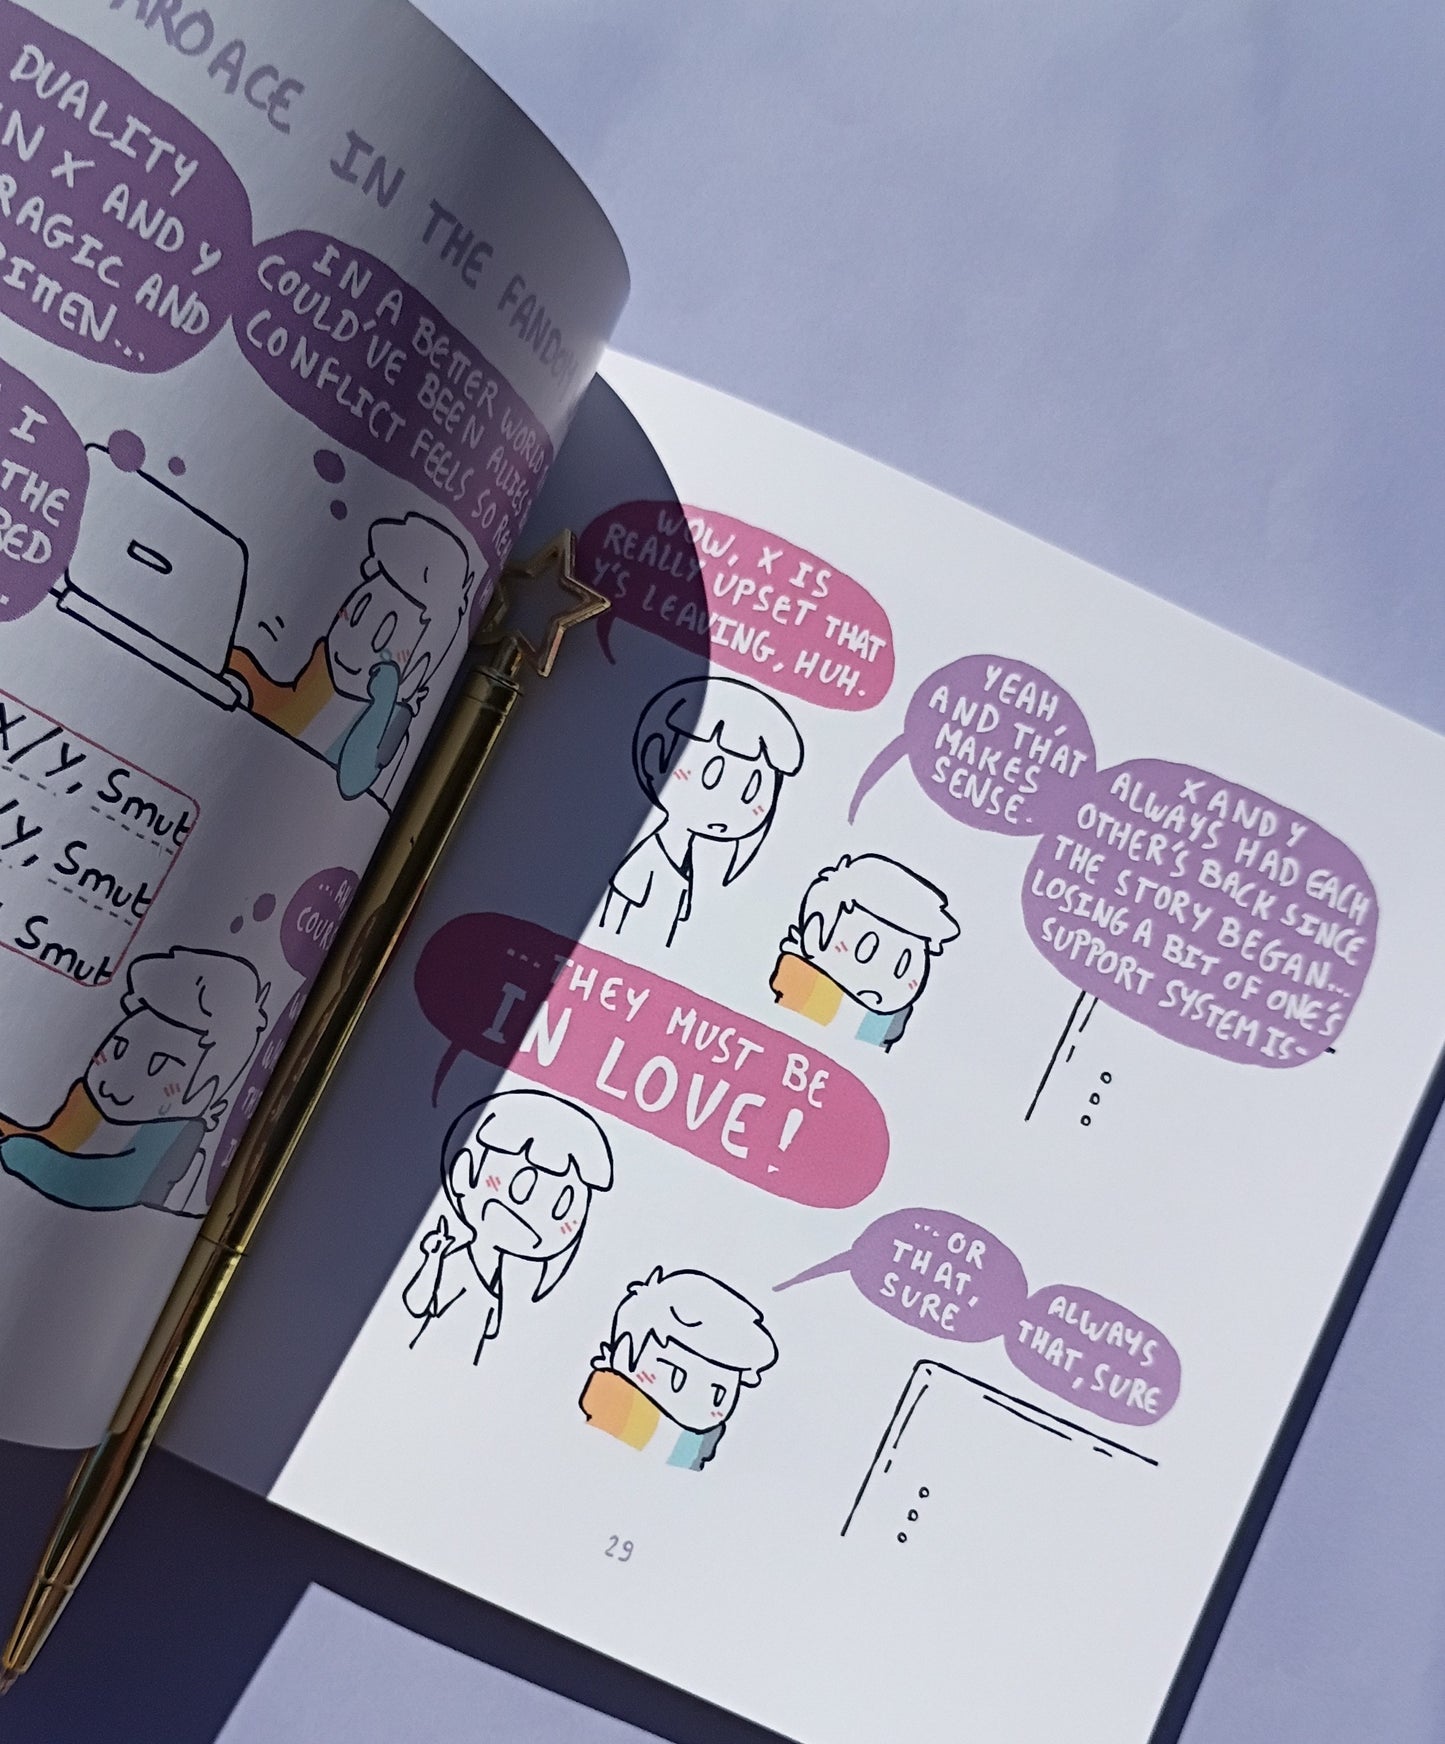 AROACE IN THE FANDOM
DUALITY
X AND Y
AND
IN A BETTER WORLD
COULD'VE BEEN ALLIES
CONFLICT FEELS SO
I
THE
X/Y, Smut
/Y, Smut
Smut
WOW, X IS
REALLY UPSET THAT
Y'S LEAVING, HUH.
YEAH,
AND THAT
MAKES
SENSE.
X AND Y
ALWAYS HAD EACH
OTHER'S BACK SINCE
THE STORY BEGAN...
LOSING A BIT OF ONE'S
SUPPORT SYSTEM IS-
...THEY MUST BE
IN LOVE!
...OR
THAT,
SURE
ALWAYS
THAT, SURE
29